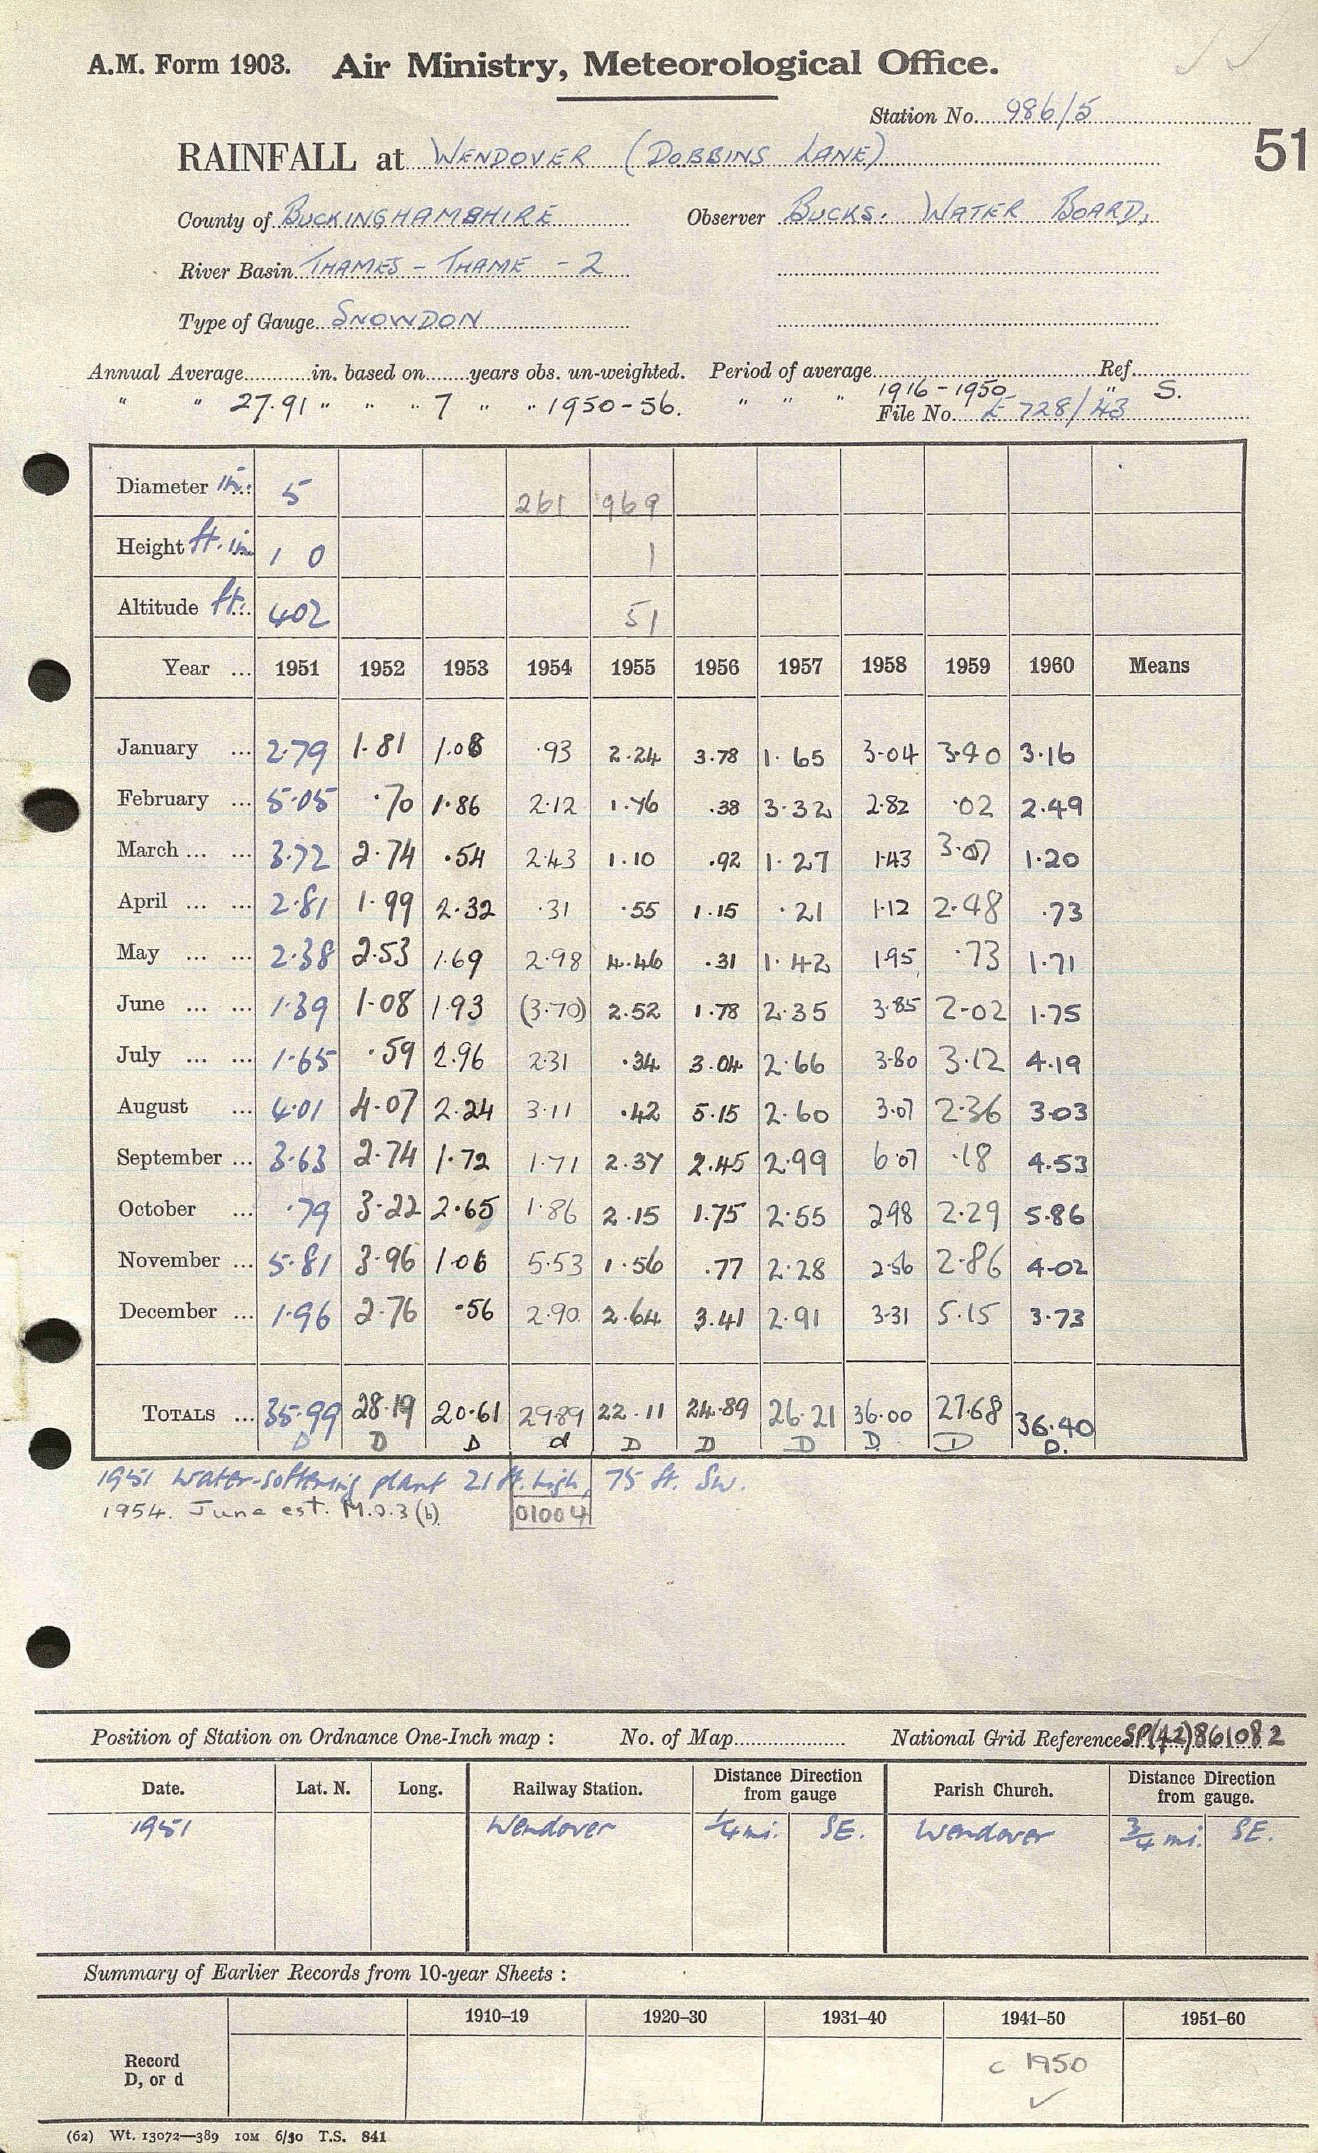 A.M. Form 1903. Air Ministry, Meteorological Office.
Station No. 986/5
51
RAINFALL at WENDOVER (DOBBINS LANE)
County of BUCKINGHAMSHIRE Observer BUCKS. WATER BOARD.
River Basin THAMES - THAME - 2
Type of Gauge SNOWDON
Annual Average............in. based on........years obs. un-weighted. Period of average............Ref............
" " 27.91 " " " 7 " " 1950-56. " " " 1916-1950 " S.
File No. E 728/43
Diameter in. 5 261 969
Height ft. in. 1 0 1
Altitude ft. 402 51
Year ... 1951 1952 1953 1954 1955 1956 1957 1958 1959 1960 Means
January ... 2.79 1.81 1.08 .93 2.24 3.78 1.65 3.04 3.40 3.16
February ... 5.05 .70 1.86 2.12 1.76 .38 3.32 2.82 .02 2.49
March ... ... 3.72 2.74 .54 2.43 1.10 .92 1.27 1.43 3.07 1.20
April ... ... 2.81 1.99 2.32 .31 .55 1.15 .21 1.12 2.48 .73
May ... ... 2.38 2.53 1.69 2.98 4.46 .31 1.42 1.95 .73 1.71
June ... ... 1.39 1.08 1.93 (3.70) 2.52 1.78 2.35 3.85 2.02 1.75
July ... ... 1.65 .59 2.96 2.31 .34 3.04 2.66 3.80 3.12 4.19
August ... 4.01 4.07 2.24 3.11 .42 5.15 2.60 3.07 2.36 3.03
September ... 3.63 2.74 1.72 1.71 2.37 2.45 2.99 6.07 .18 4.53
October ... .79 3.22 2.65 1.86 2.15 1.75 2.55 2.98 2.29 5.86
November ... 5.81 3.96 1.06 5.53 1.56 .77 2.28 2.56 2.86 4.02
December ... 1.96 2.76 .56 2.90 2.64 3.41 2.91 3.31 5.15 3.73
TOTALS ... 35.99 28.19 20.61 29.89 22.11 24.89 26.21 36.00 27.68 36.40
D D D d D D D D D D.
1951 Water-softening plant 21 ft. high, 75 ft. SW.
1954. June est. M.O.3(b). 01004
Position of Station on Ordnance One-Inch map : No. of Map.................... National Grid Reference SP(42)861082
Date. Lat. N. Long. Railway Station. Distance Direction from gauge Parish Church. Distance Direction from gauge.
1951 Wendover 1/4 mi. SE. Wendover 3/4 mi. SE.
Summary of Earlier Records from 10-year Sheets :
1910–19 1920–30 1931–40 1941–50 1951–60
Record D, or d c 1950
✓
(62) Wt. 13072—389 10M 6/50 T.S. 841